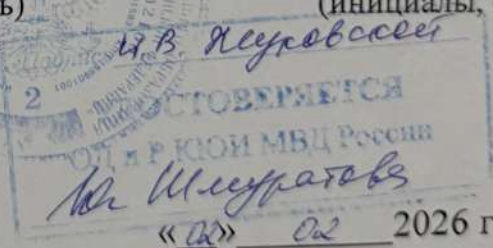 ь) (инициалы,
И В Жуковской
2 УДОСТОВЕРЯЕТСЯ
ОД и Р КЮИ МВД России
Шмуратова
«02» 02 2026 г